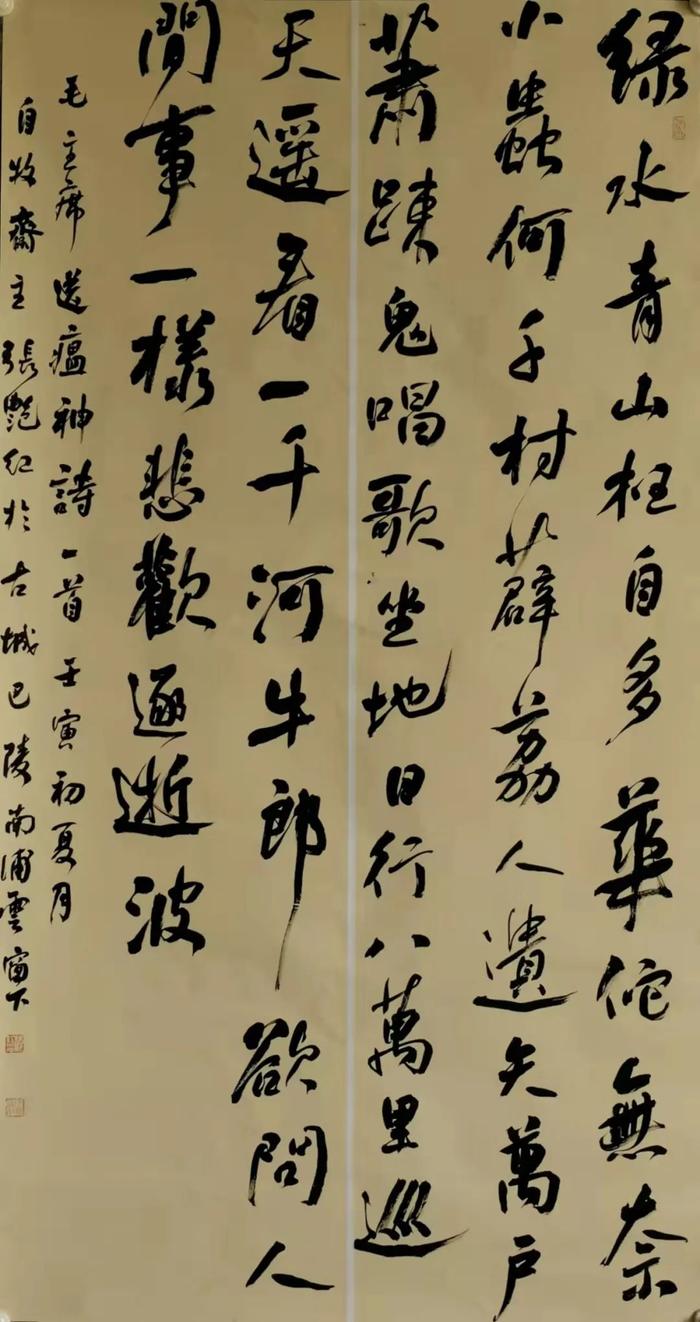 緑水青山枉自多華佗無奈
小蟲何千村薜荔人遺矢萬户
蕭踈鬼唱歌坐地日行八萬里巡
天遥看一千河牛郎欲問人
間事一樣悲歡逐逝波
毛主席送瘟神詩一首壬寅初夏月
自牧齋主張艷红於古城巴陵南浦雲窗下